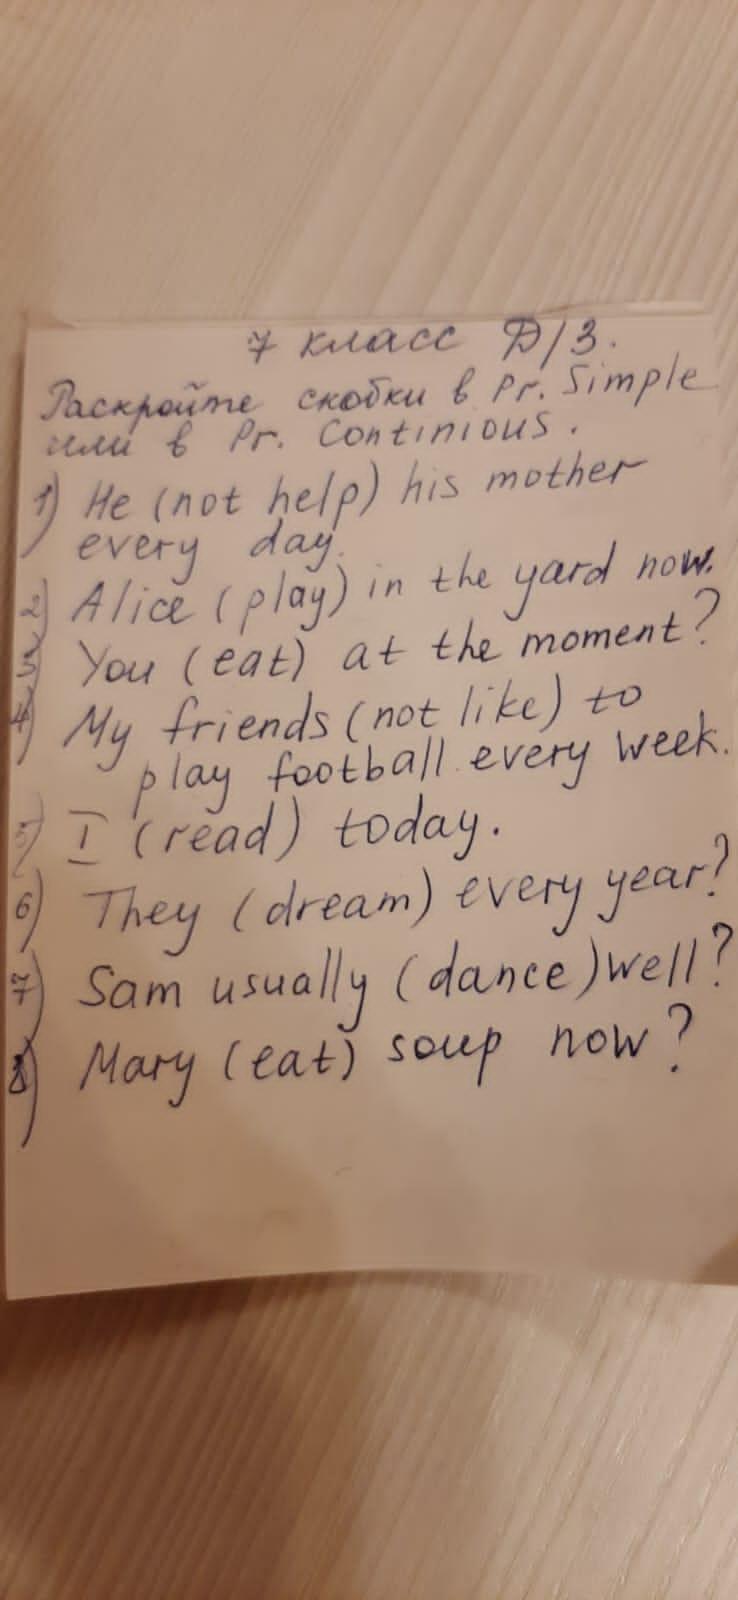 7 класс Д/З.
Раскройте скобки в Pr. Simple
или в Pr. Continious.
1) He (not help) his mother
every day.
2) Alice (play) in the yard now.
3) You (eat) at the moment?
4) My friends (not like) to
play football every week.
5) I (read) today.
6) They (dream) every year?
7) Sam usually (dance) well?
8) Mary (eat) soup now?